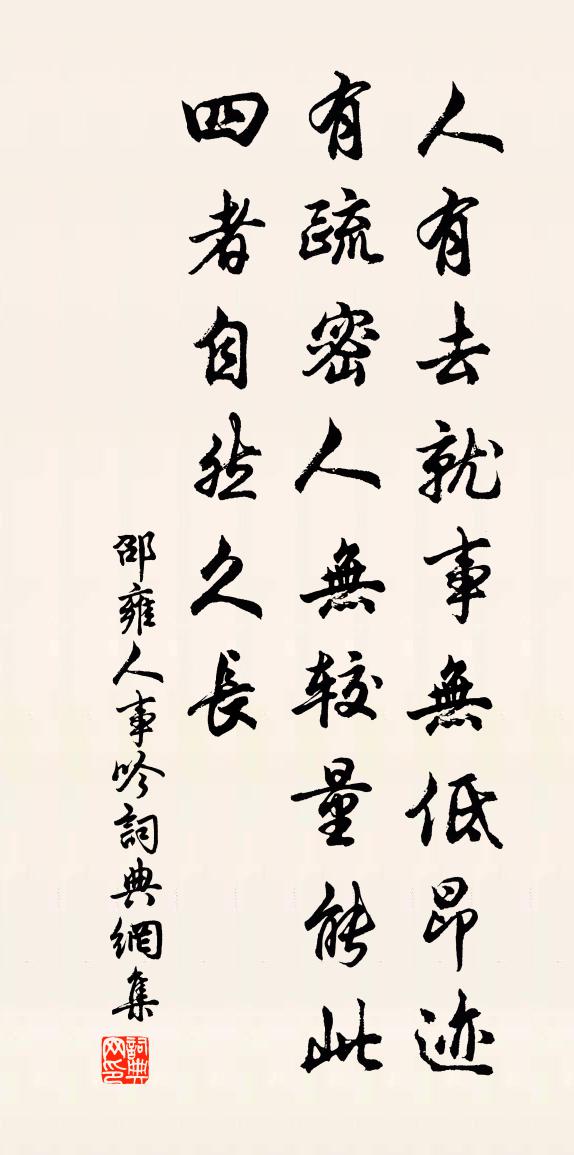 人有去就事無低昂迹
有疏密人無較量能此
四者自然久長
邵雍人事吟詞典網集
詞典网印